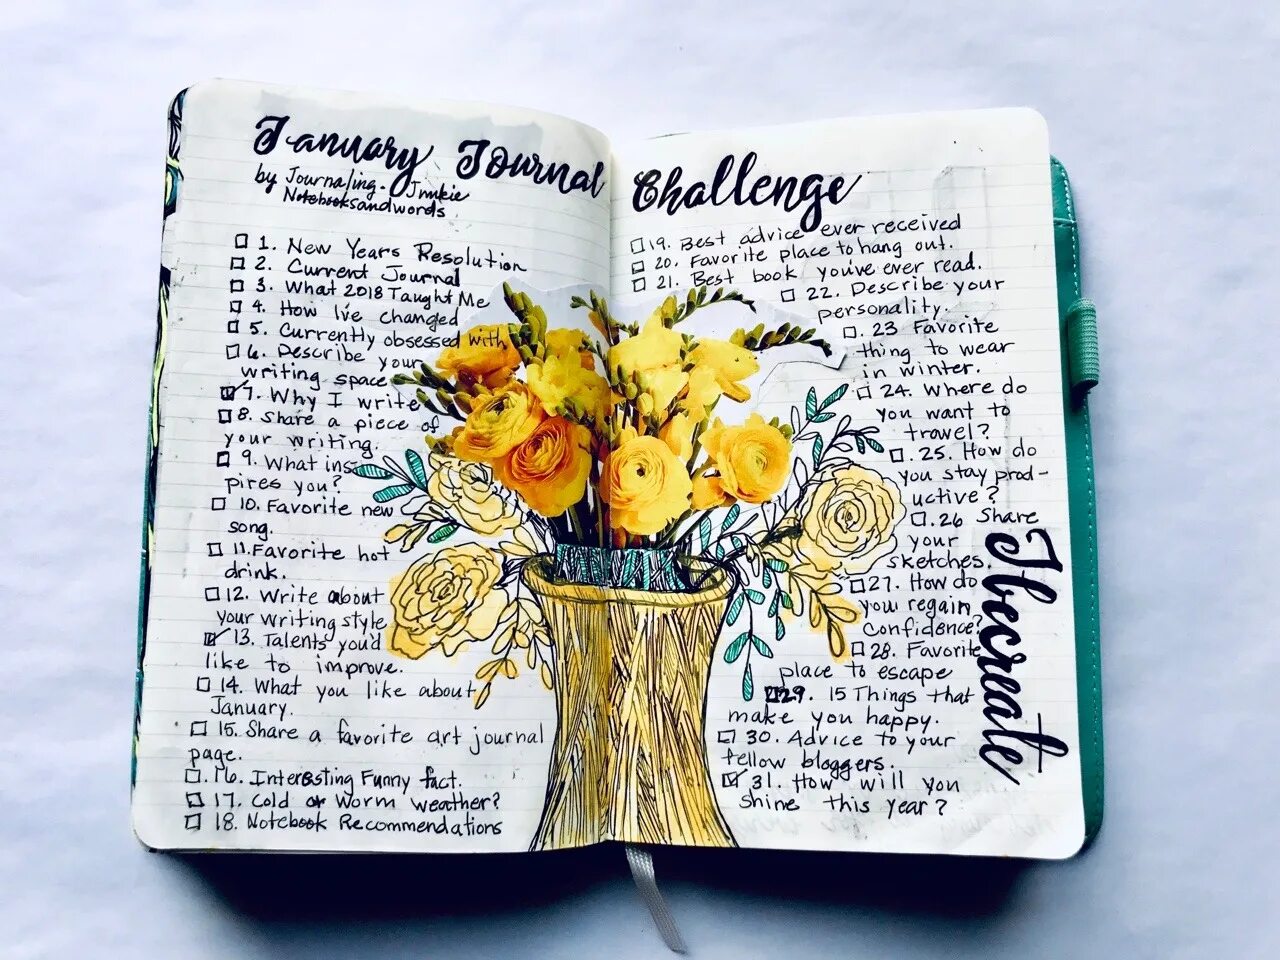 January Journal Challenge
by Journaling. Junkie
Notebooksandwords
☐ 1. New Years Resolution
☐ 2. Current Journal
☐ 3. What 2018 Taught Me
☐ 4. How I've changed
☐ 5. Currently obsessed with
☐ 6. Describe your
writing space
☑ 7. Why I write
☐ 8. Share a piece of
your writing.
☐ 9. What ins-
pires you?
☐ 10. Favorite new
song.
☐ 11. Favorite hot
drink.
☐ 12. Write about
your writing style
☑ 13. Talents you'd
like to improve.
☐ 14. What you like about
January.
☐ 15. Share a favorite art journal
page.
☐ 16. Interesting Funny fact.
☐ 17. Cold or Worm weather?
☐ 18. Notebook Recommendations
☐ 19. Best advice ever received
☐ 20. Favorite place to hang out.
☐ 21. Best book you've ever read.
☐ 22. Describe your
personality.
☐. 23 Favorite
thing to wear
in winter.
☐ 24. Where do
you want to
travel?
☐. 25. How do
you stay prod-
uctive?
☐. 26 Share
your
sketches.
☐ 27. How do
you regain
confidence?
☐ 28. Favorite
place to escape
☐ 29. 15 Things that
make you happy.
☐ 30. Advice to your
fellow bloggers.
☑ 31. How will you
shine this year?
Thecreate